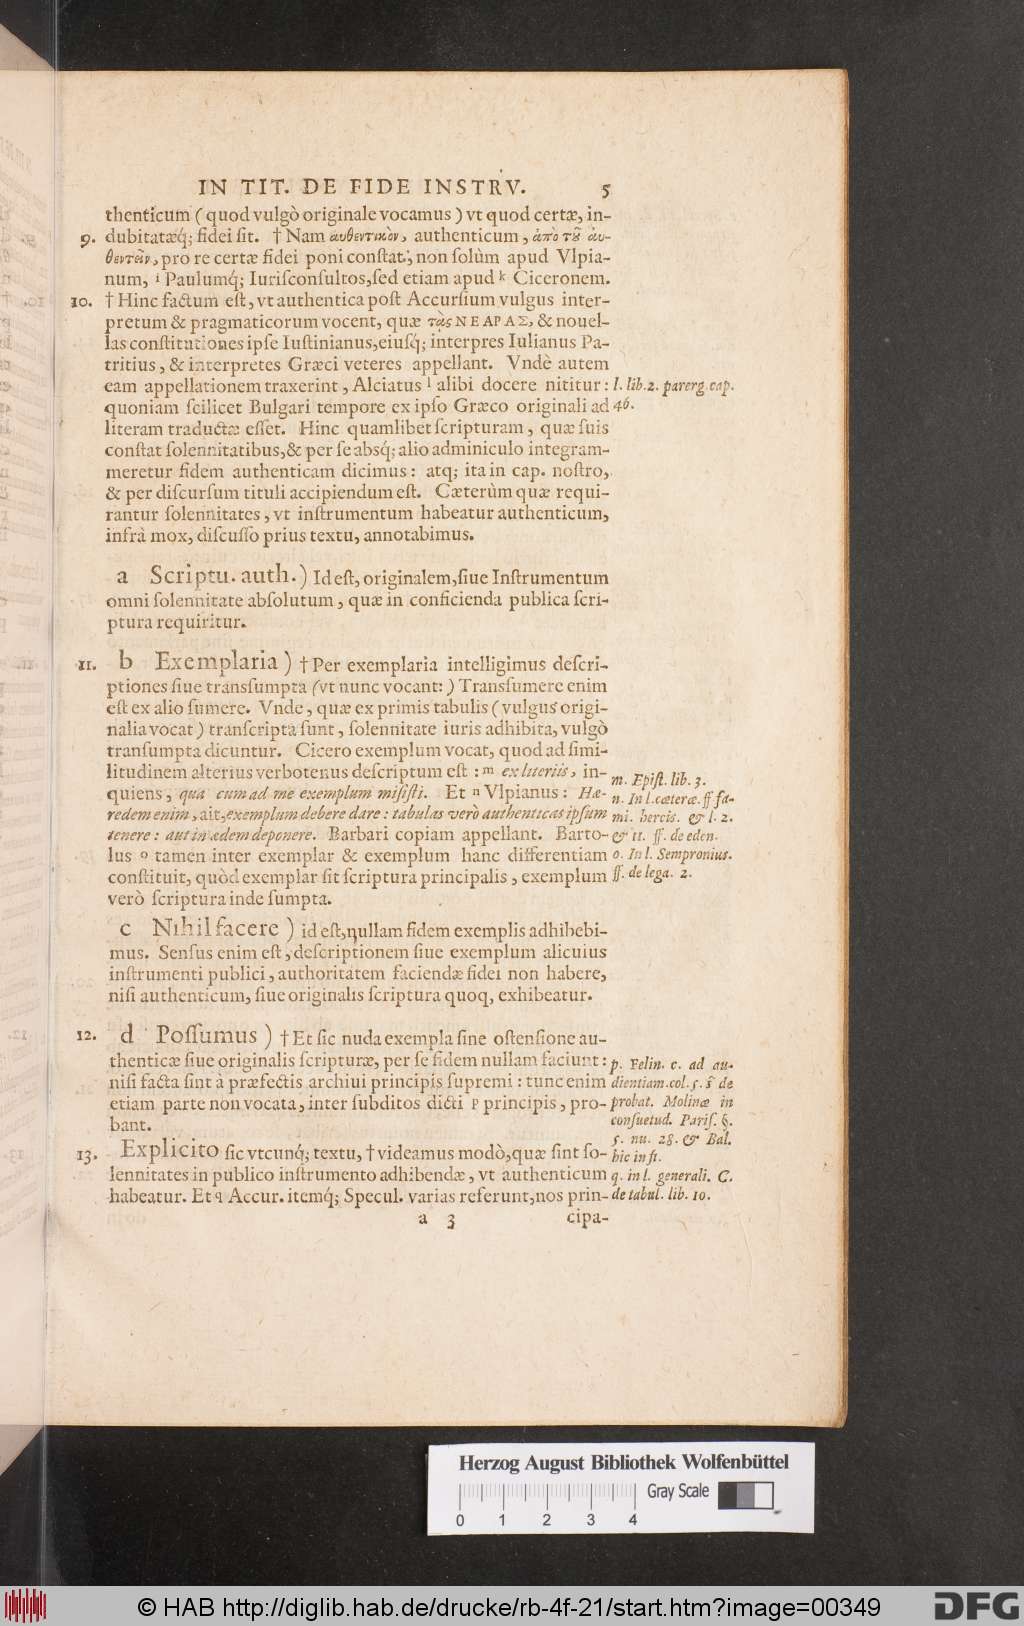 IN TIT. DE FIDE INSTRV. 5
thenticum (quod vulgò originale vocamus) vt quod certæ, in-
9. dubitatæq́; fidei sit. † Nam αυθεντικὸν, authenticum, ἀπὸ τῦ αυ-
θεντεῖν, pro re certæ fidei poni constat, non solùm apud Vlpia-
num, i Paulumq́; Iurisconsultos, sed etiam apud k Ciceronem.
10. † Hinc factum est, vt authentica post Accursium vulgus inter-
pretum & pragmaticorum vocent, quæ τὰς ΝΕΑΡΑΣ, & nouel-
las constitutiones ipse Iustinianus, eiusq́; interpres Iulianus Pa-
tritius, & interpretes Græci veteres appellant. Vndè autem
eam appellationem traxerint, Alciatus l alibi docere nititur: l. lib. 2. parerg. cap.
quoniam scilicet Bulgari tempore ex ipso Græco originali ad 46.
literam traductæ essēt. Hinc quamlibet scripturam, quæ suis
constat solennitatibus, & per se absq́; alio adminiculo integram-
meretur fidem authenticam dicimus: atq; ita in cap. nostro,
& per discursum tituli accipiendum est. Cæterùm quæ requi-
rantur solennitates, vt instrumentum habeatur authenticum,
infrà mox, discusso prius textu, annotabimus.
a Scriptu. auth.) Id est, originalem, siue Instrumentum
omni solennitate absolutum, quæ in conficienda publica scri-
ptura requiritur.
11. b Exemplaria) † Per exemplaria intelligimus descri-
ptiones siue transsumpta (vt nunc vocant:) Transsumere enim
est ex alio sumere. Vnde, quæ ex primis tabulis (vulgus origi-
nalia vocat) transcripta sunt, solennitate iuris adhibita, vulgò
transumpta dicuntur. Cicero exemplum vocat, quod ad simi-
litudinem alterius verbotenus descriptum est: m ex literiis, in- m. Epist. lib. 3.
quiens, qua cum ad me exemplum misisti. Et n Vlpianus: Hæ- n. In l. cæteræ. ff fa-
redem enim, ait, exemplum debere dare: tabulas verò authenticas ipsum mi. hercis. & l. 2.
tenere: aut in ædem deponere. Barbari copiam appellant. Barto- & tt. ff. de eden.
lus o tamen inter exemplar & exemplum hanc differentiam o. In l. Sempronius.
constituit, quòd exemplar sit scriptura principalis, exemplum ff. de lega. 2.
verò scriptura inde sumpta.
c Nihil facere) id est, nullam fidem exemplis adhibebi-
mus. Sensus enim est, descriptionem siue exemplum alicuius
instrumenti publici, authoritatem faciendæ fidei non habere,
nisi authenticum, siue originalis scriptura quoq, exhibeatur.
12. d Possumus) † Et sic nuda exempla sine ostensione au-
thenticæ siue originalis scripturæ, per se fidem nullam faciunt: p. Felin. c. ad au-
nisi facta sint à præfectis archiui principis supremi: tunc enim dientiam. col. 5. s̃ de
etiam parte non vocata, inter subditos dicti p principis, pro- probat. Molinæ in
bant. consuetud. Paris. §.
5. nu. 28. & Bal.
13. Explicito sic vtcunq́; textu, † videamus modò, quæ sint so- hic in fi.
lennitates in publico instrumento adhibendæ, vt authenticum q. in l. generali. C.
habeatur. Et q Accur. itemq́; Specul. varias referunt, nos prin- de tabul. lib. 10.
a 3 cipa-
Herzog August Bibliothek Wolfenbüttel
Gray Scale
0 1 2 3 4
© HAB http://diglib.hab.de/drucke/rb-4f-21/start.htm?image=00349
DFG